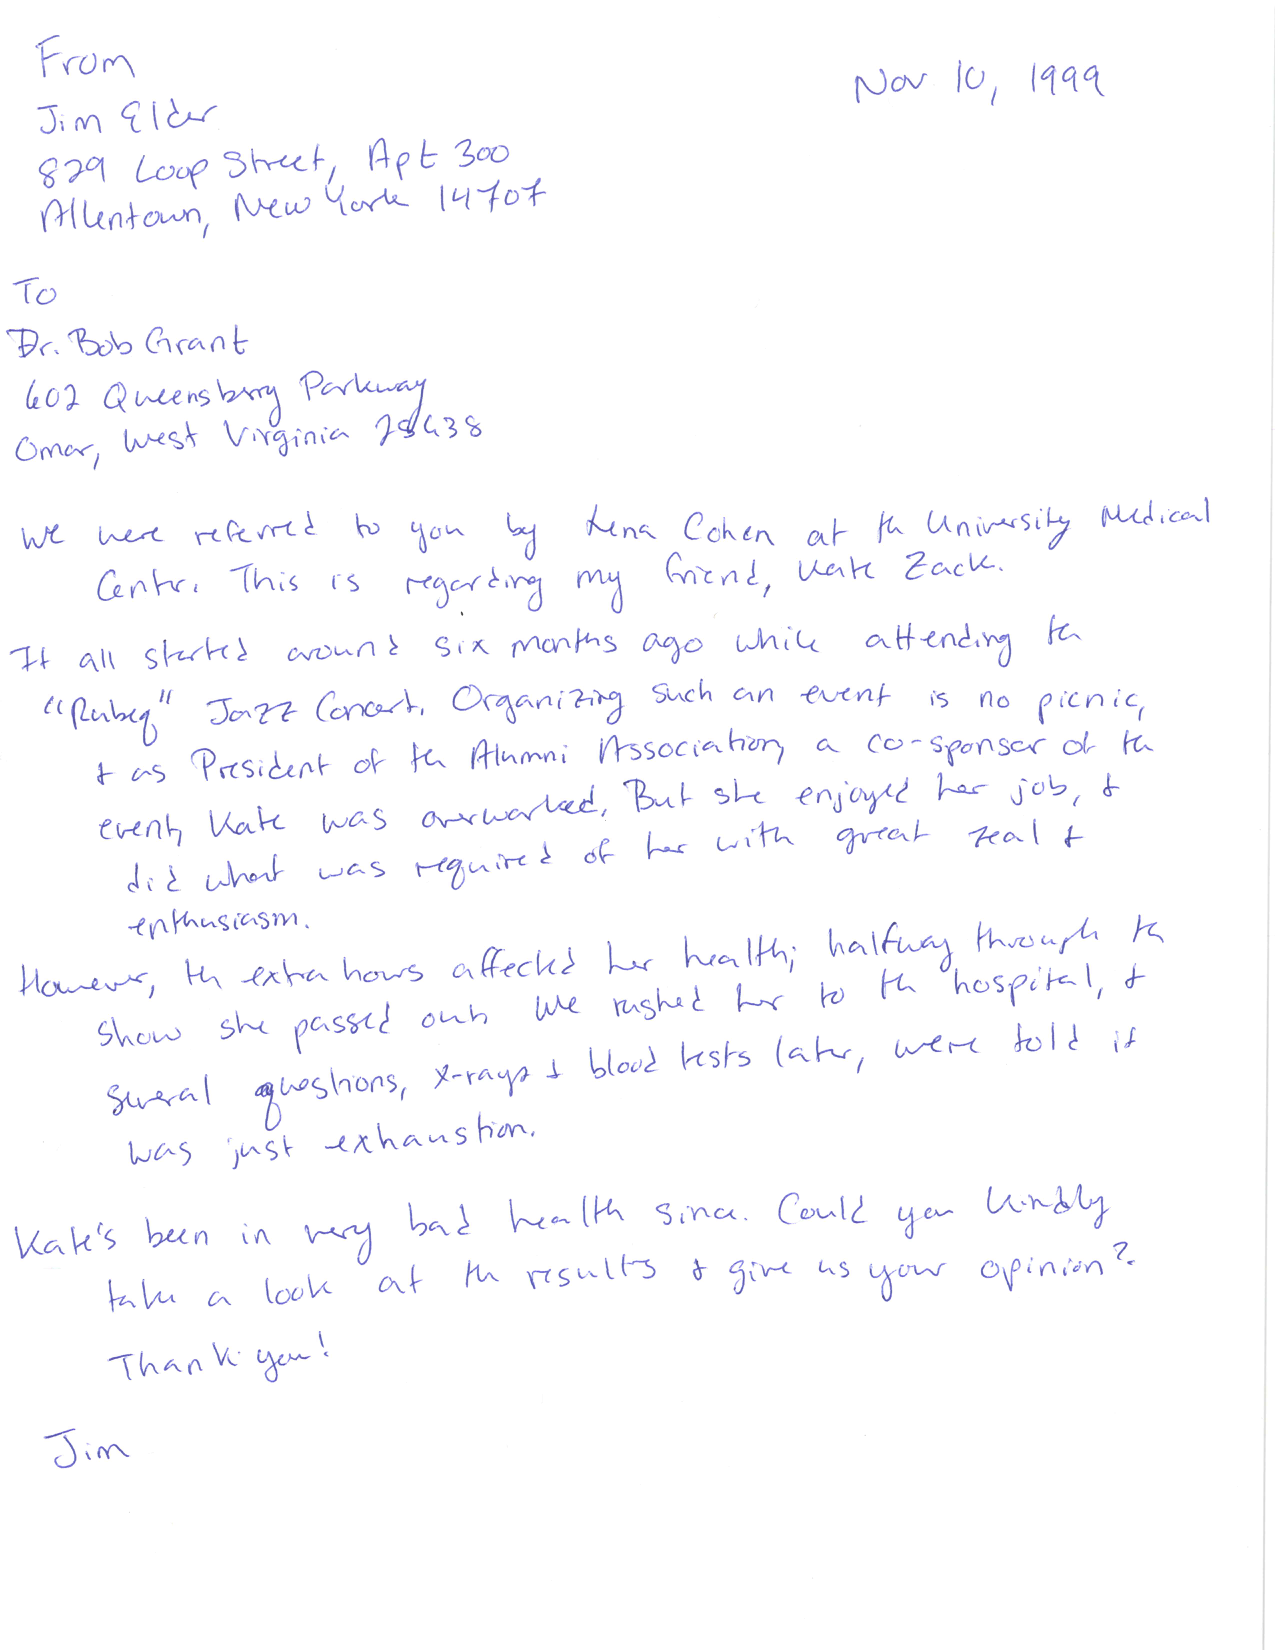 From
Nov 10, 1999
Jim Elder
829 Loop Street, Apt 300
Allentown, New York 14707
To
Dr. Bob Grant
602 Queensberry Parkway
Omar, West Virginia 25638
We were referred to you by Xena Cohen at the University Medical
Center. This is regarding my friend, Kate Zack.
It all started around six months ago while attending the
"Rubeq" Jazz Concert. Organizing such an event is no picnic,
& as President of the Alumni Association, a co-sponsor of the
event, Kate was overworked. But she enjoyed her job, &
did what was required of her with great zeal &
enthusiasm.
However, the extra hours affected her health; halfway through the
show she passed out. We rushed her to the hospital, &
several questions, x-rays & blood tests later, were told it
was just exhaustion.
Kate's been in very bad health since. Could you kindly
take a look at the results & give us your opinion?
Thank you!
Jim